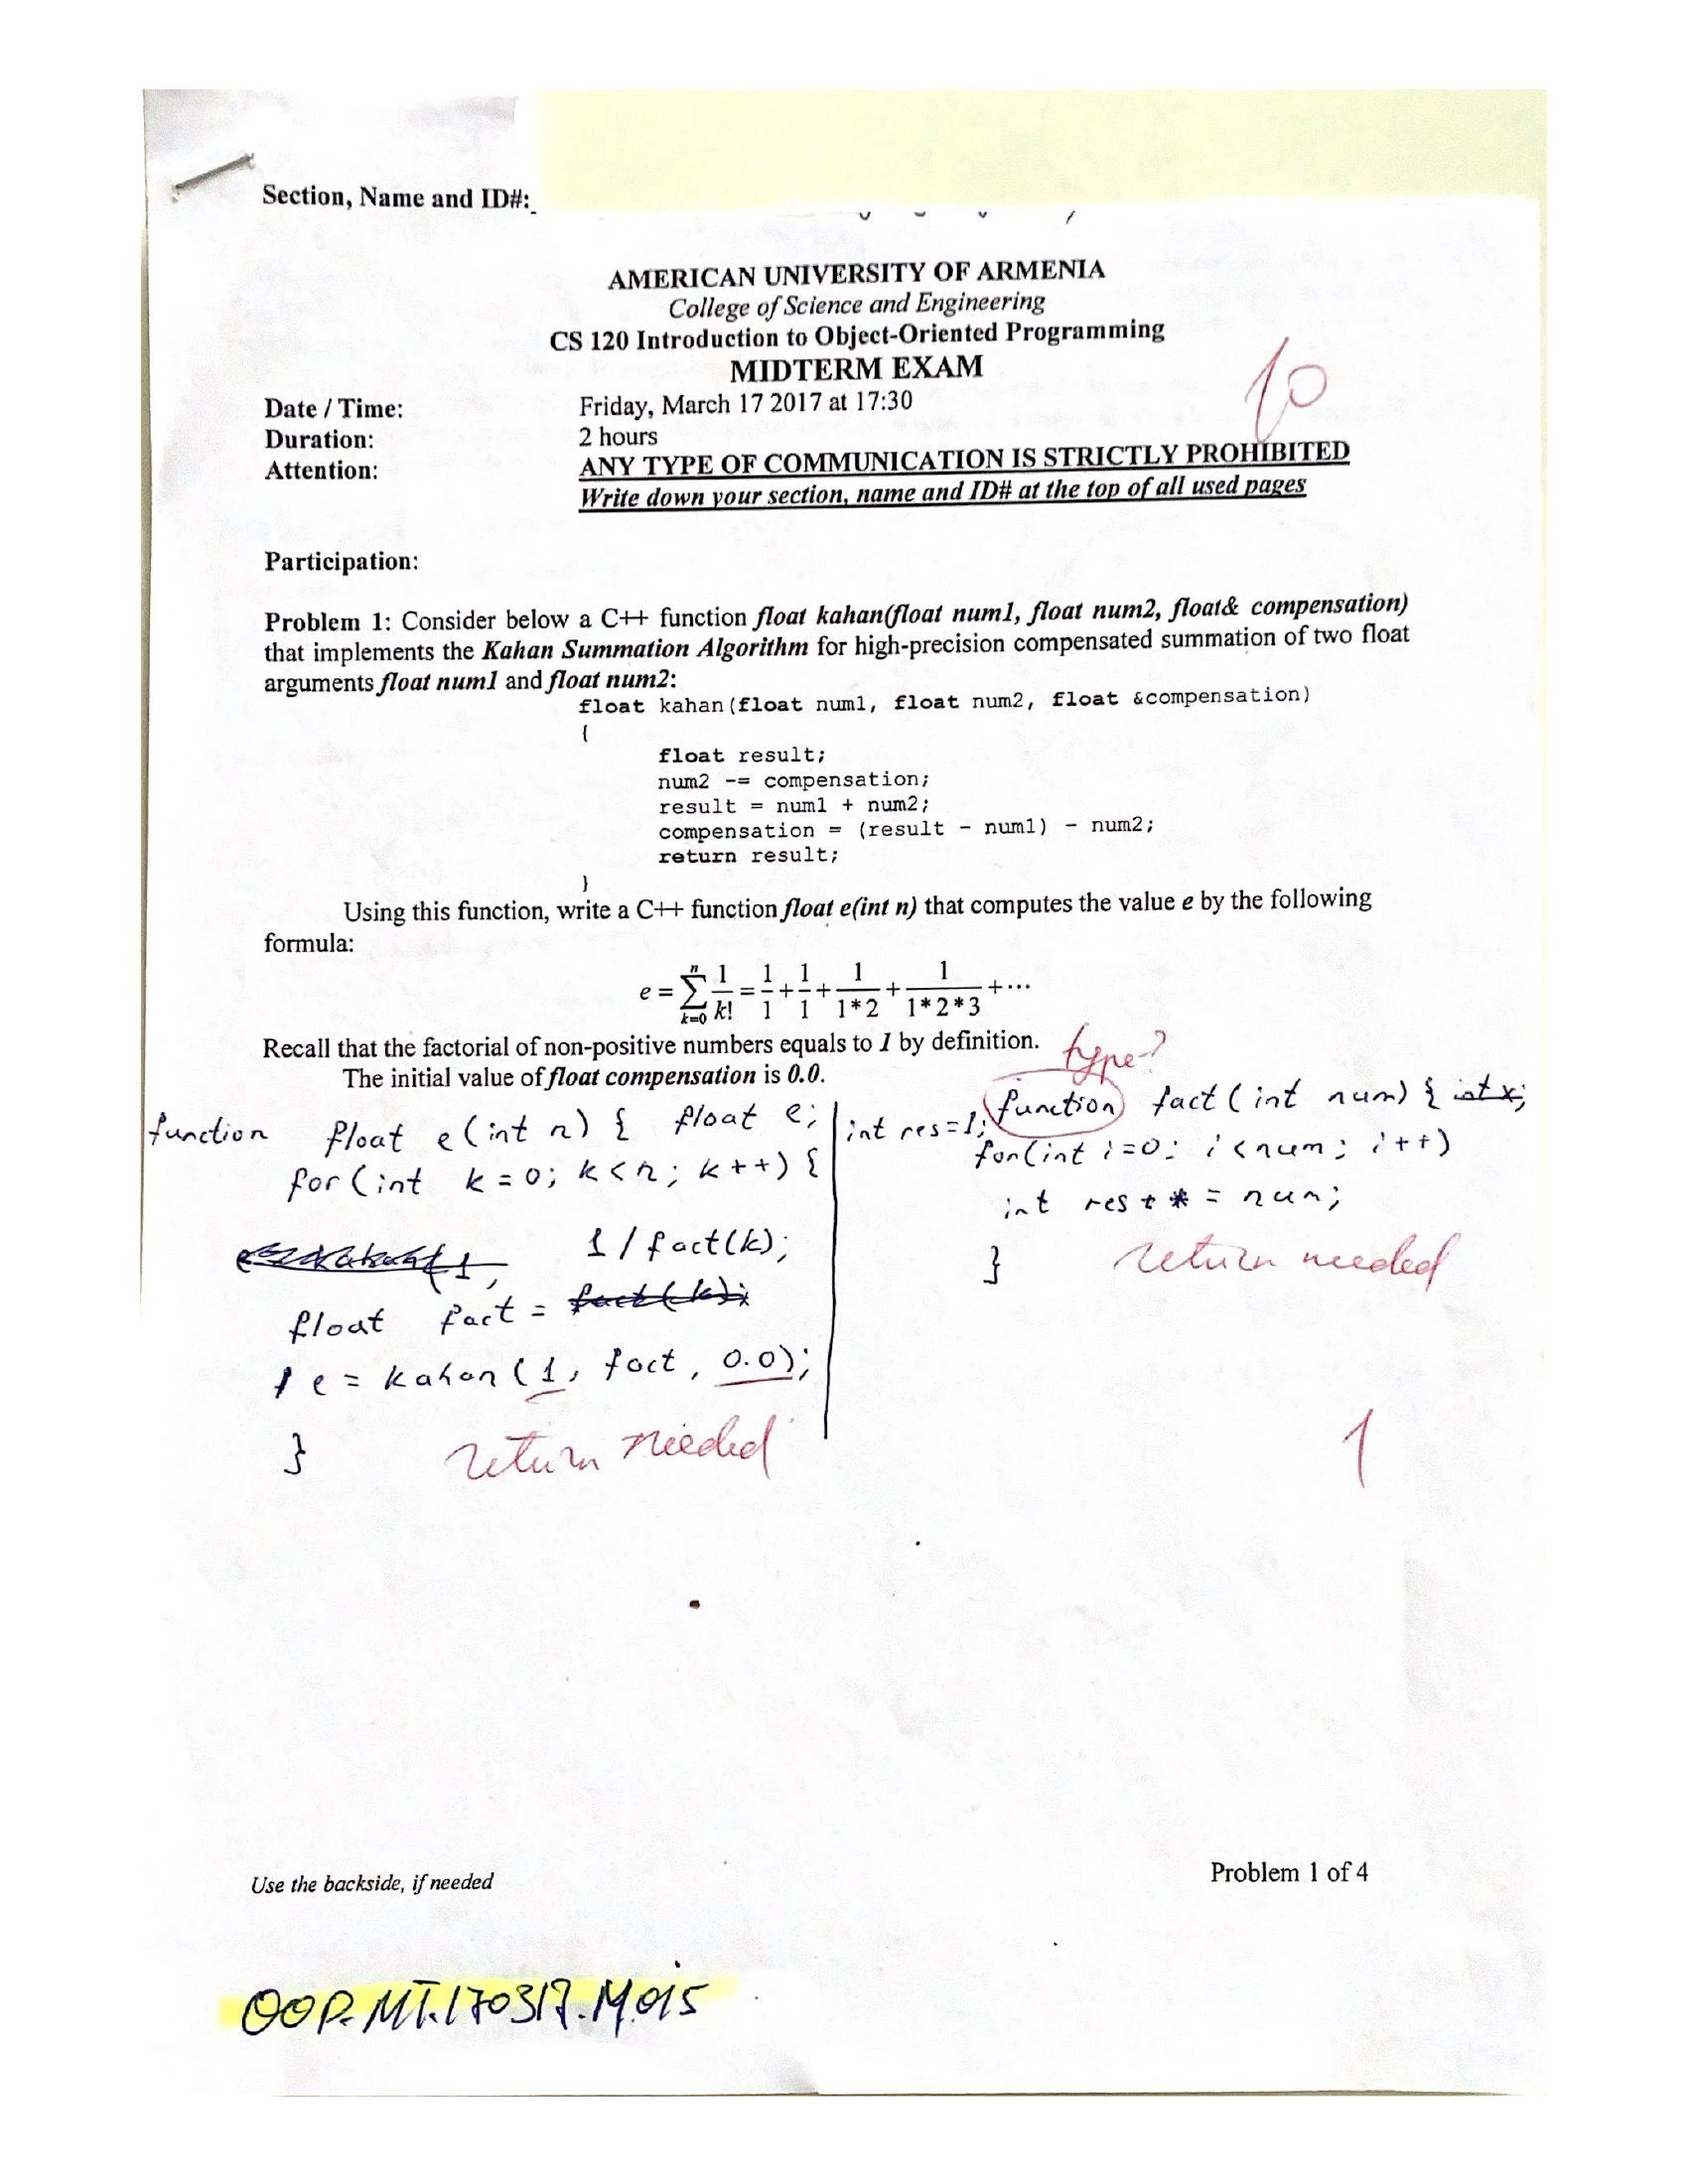 Section, Name and ID#:
AMERICAN UNIVERSITY OF ARMENIA
College of Science and Engineering
CS 120 Introduction to Object-Oriented Programming
MIDTERM EXAM
10
Date / Time: Friday, March 17 2017 at 17:30
Duration: 2 hours
Attention: ANY TYPE OF COMMUNICATION IS STRICTLY PROHIBITED
Write down your section, name and ID# at the top of all used pages
Participation:
Problem 1: Consider below a C++ function float kahan(float num1, float num2, float& compensation)
that implements the Kahan Summation Algorithm for high-precision compensated summation of two float
arguments float num1 and float num2:
float kahan(float num1, float num2, float &compensation)
{
float result;
num2 -= compensation;
result = num1 + num2;
compensation = (result - num1) - num2;
return result;
}
Using this function, write a C++ function float e(int n) that computes the value e by the following
formula:
e = \sum_{k=0}^{n} \frac{1}{k!} = \frac{1}{1} + \frac{1}{1} + \frac{1}{1*2} + \frac{1}{1*2*3} + ⋯
Recall that the factorial of non-positive numbers equals to 1 by definition.
The initial value of float compensation is 0.0.
function float e(int n) { float e;
for(int k=0; k<n; k++) {
1/fact(k);
float fact = fact(k);
e = kahan(1, fact, 0.0);
}
return needed
type?
function fact(int num) { int x;
int res=1;
for(int i=0; i<num; i++)
int res * = num;
}
return needed
1
Use the backside, if needed
Problem 1 of 4
OOP.MT.170317.M.015